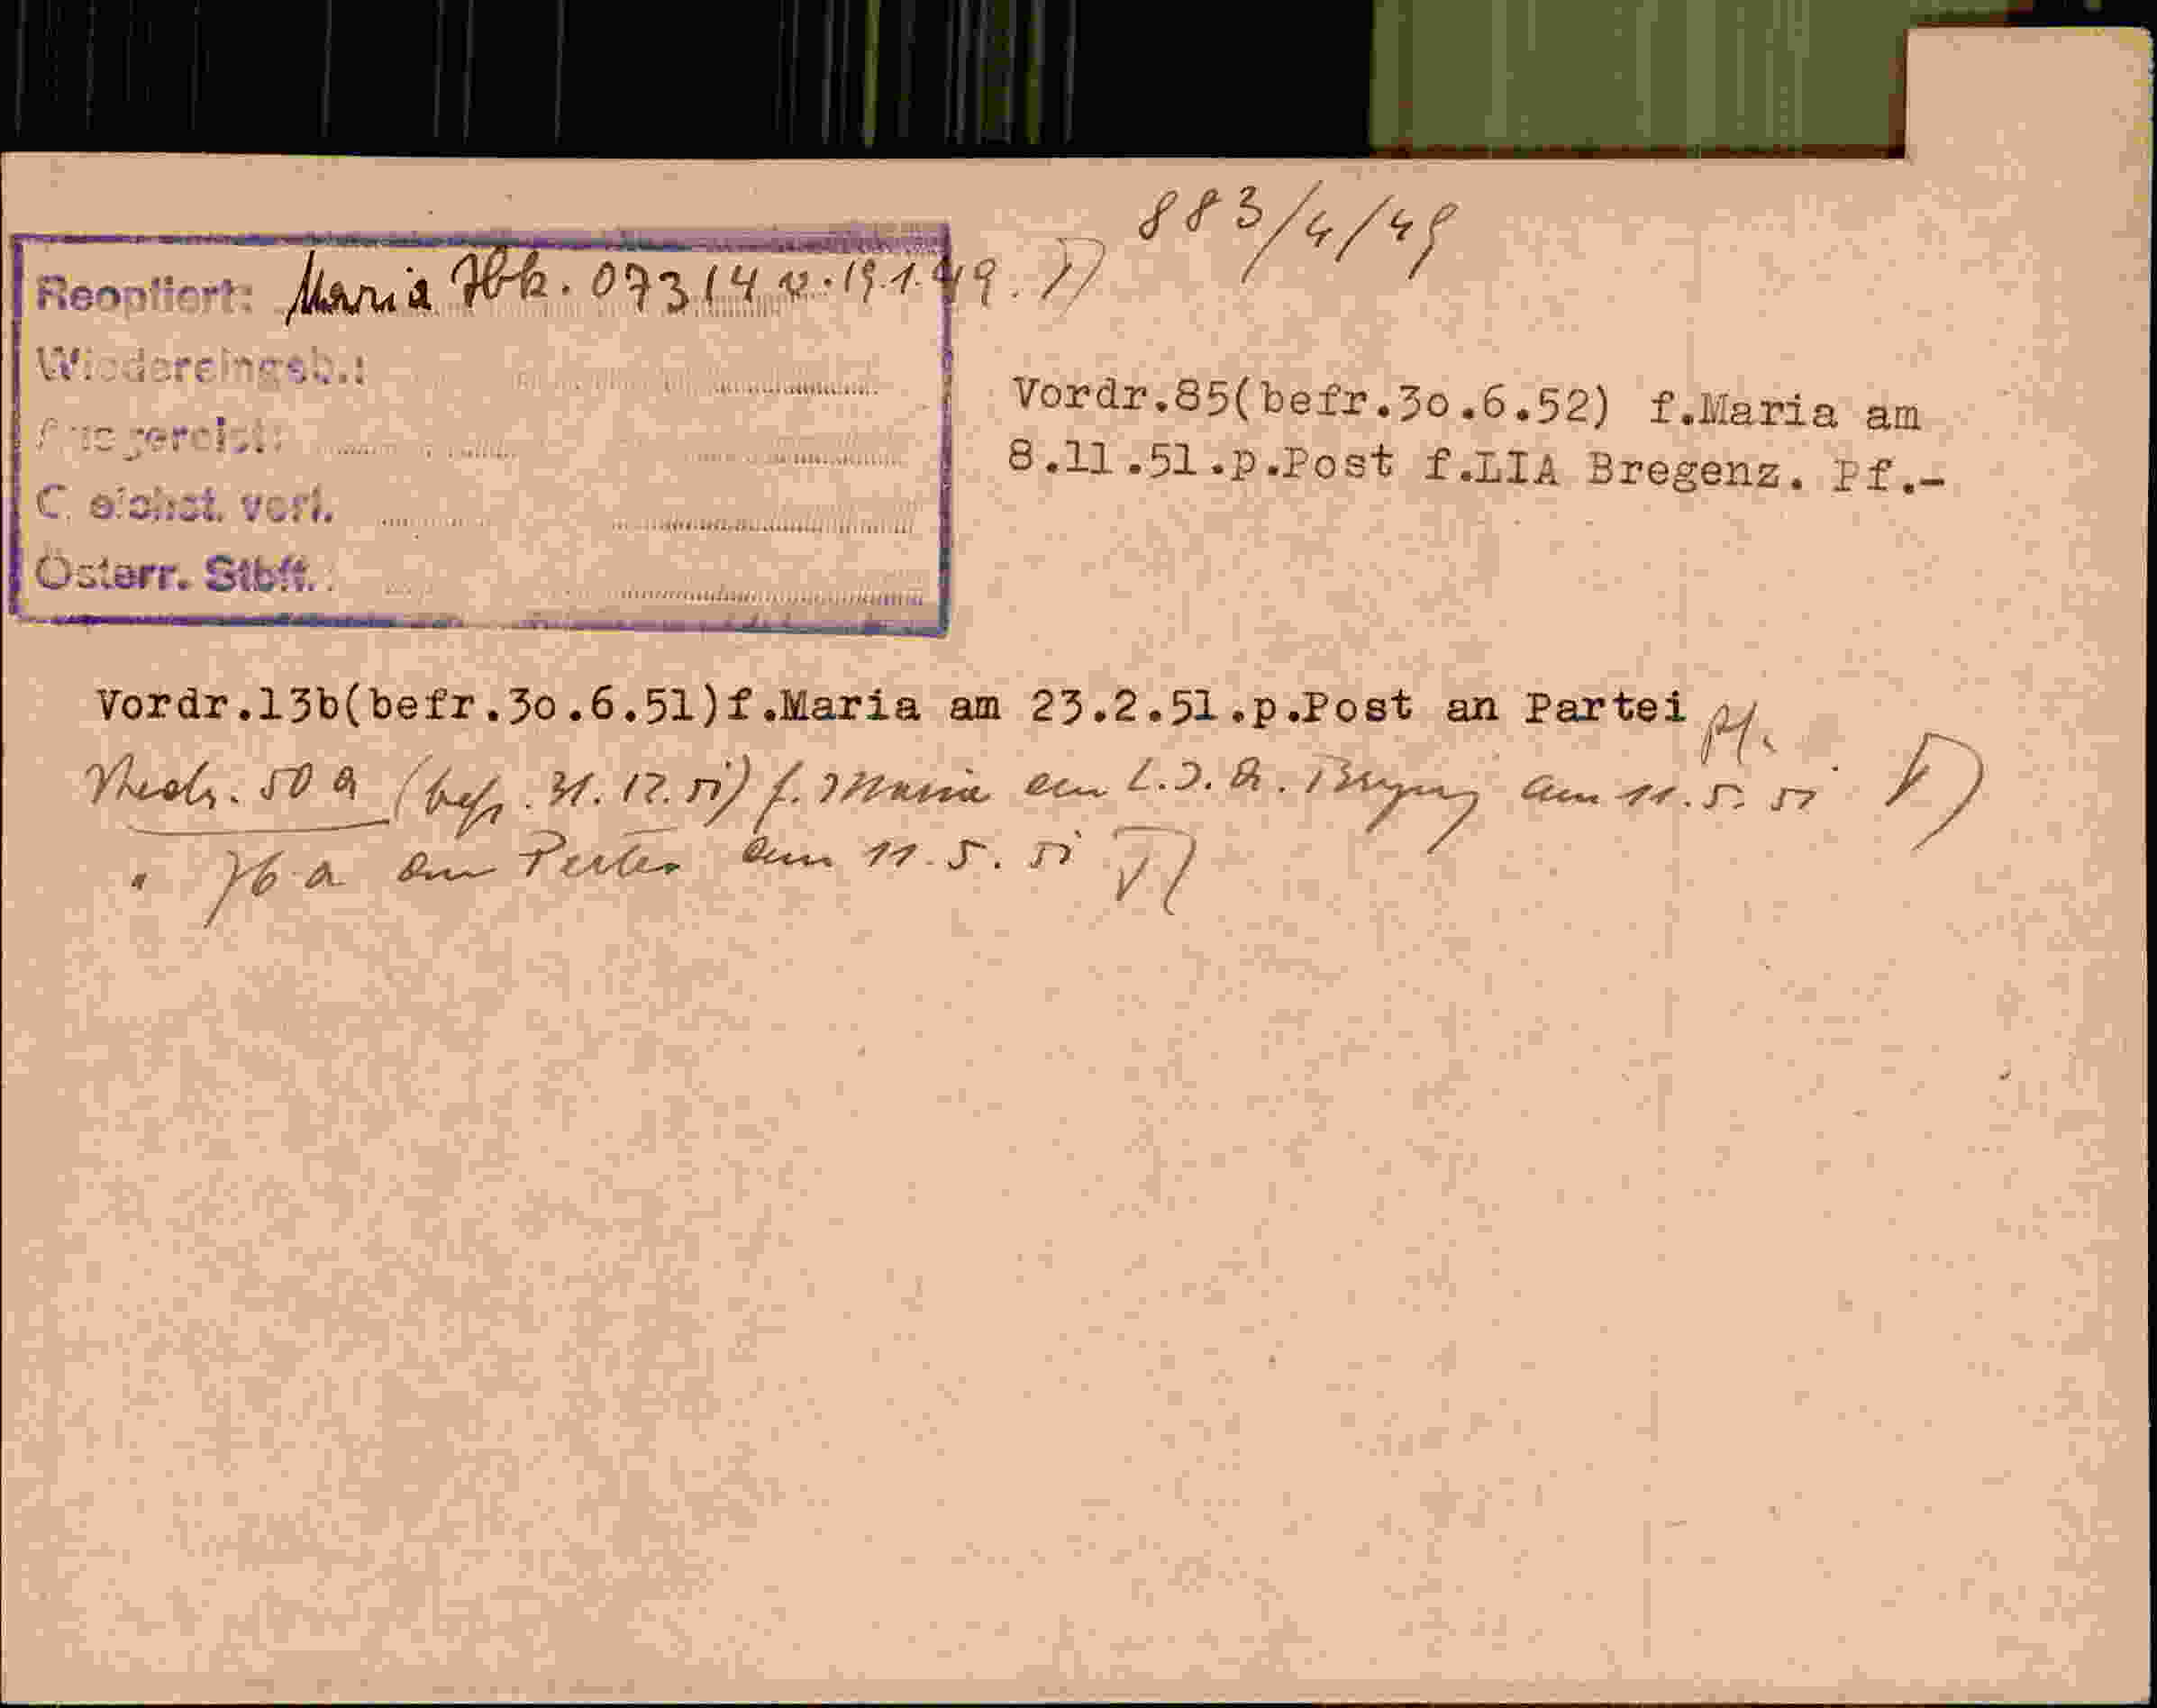 883/4/49
Reoptiert: Maria Ibk. 07314 v. 19.1.49.
Wiedereingeb.:
Ausgereist:
Gleichst. verl.
Österr. Stbft.
Vordr.85(befr.30.6.52) f.Maria am
8.11.51.p.Post f.LIA Bregenz. Pf.-
Vordr.13b(befr.30.6.51)f.Maria am 23.2.51.p.Post an Partei Pf.
Vordr. 50 a (befr. 31.12.51) f. Maria an L.I.A. Bregenz am 11.5.51
" 76 a an Partei am 11.5.51